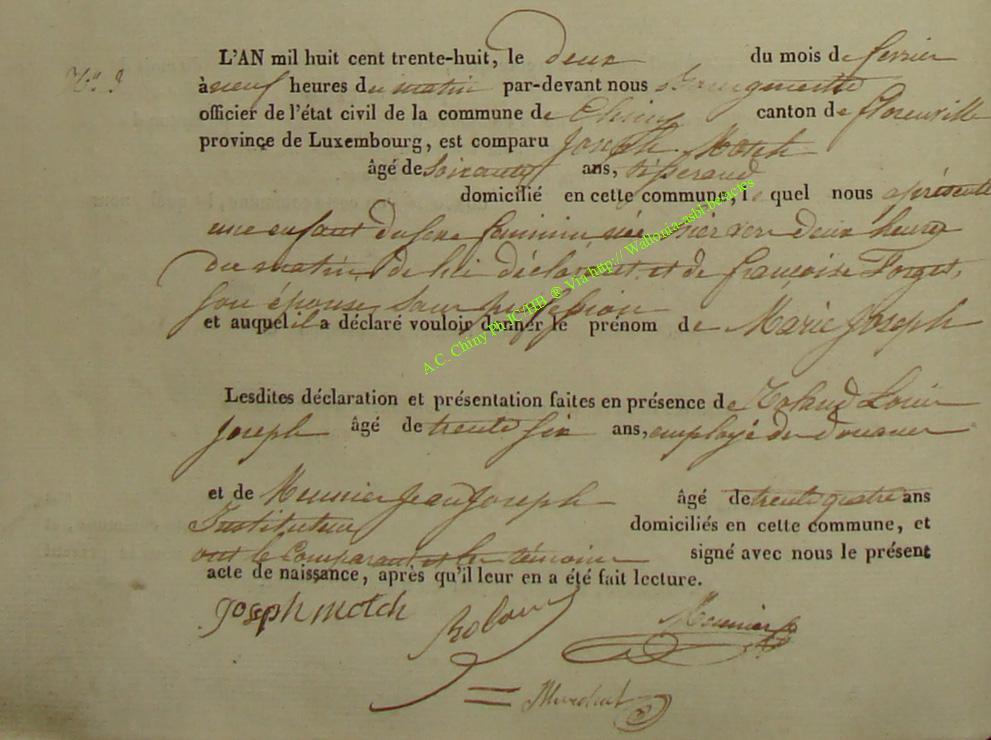 L'AN mil huit cent trente-huit, le deux du mois de fevrier
N° 3
à neuf heures du matin par-devant nous
officier de l'état civil de la commune de Chiny canton de florenville
province de Luxembourg, est comparu Joseph Motch
âgé de Soixante ans,
domicilié en cette commune, lequel nous a présenté
une enfant du sexe feminin, née hier vers deux heures
du matin, de lui déclarant et de françoise Forget,
son épouse, sans profession
et auquel il a déclaré vouloir donner le prénom de Marie Joseph
A.C. Chiny Ph.JC HB ® Via http:// Wallonia-asbl-beactes
Lesdites déclaration et présentation faites en présence de Roland Louis
Joseph âgé de trente six ans, employé des douanes
et de Meunier Jean Joseph âgé de trente quatre ans
Instituteur domiciliés en cette commune, et
ont le Comparant et les témoins signé avec nous le présent
acte de naissance, après qu'il leur en a été fait lecture.
Joseph motch Roland Meunier